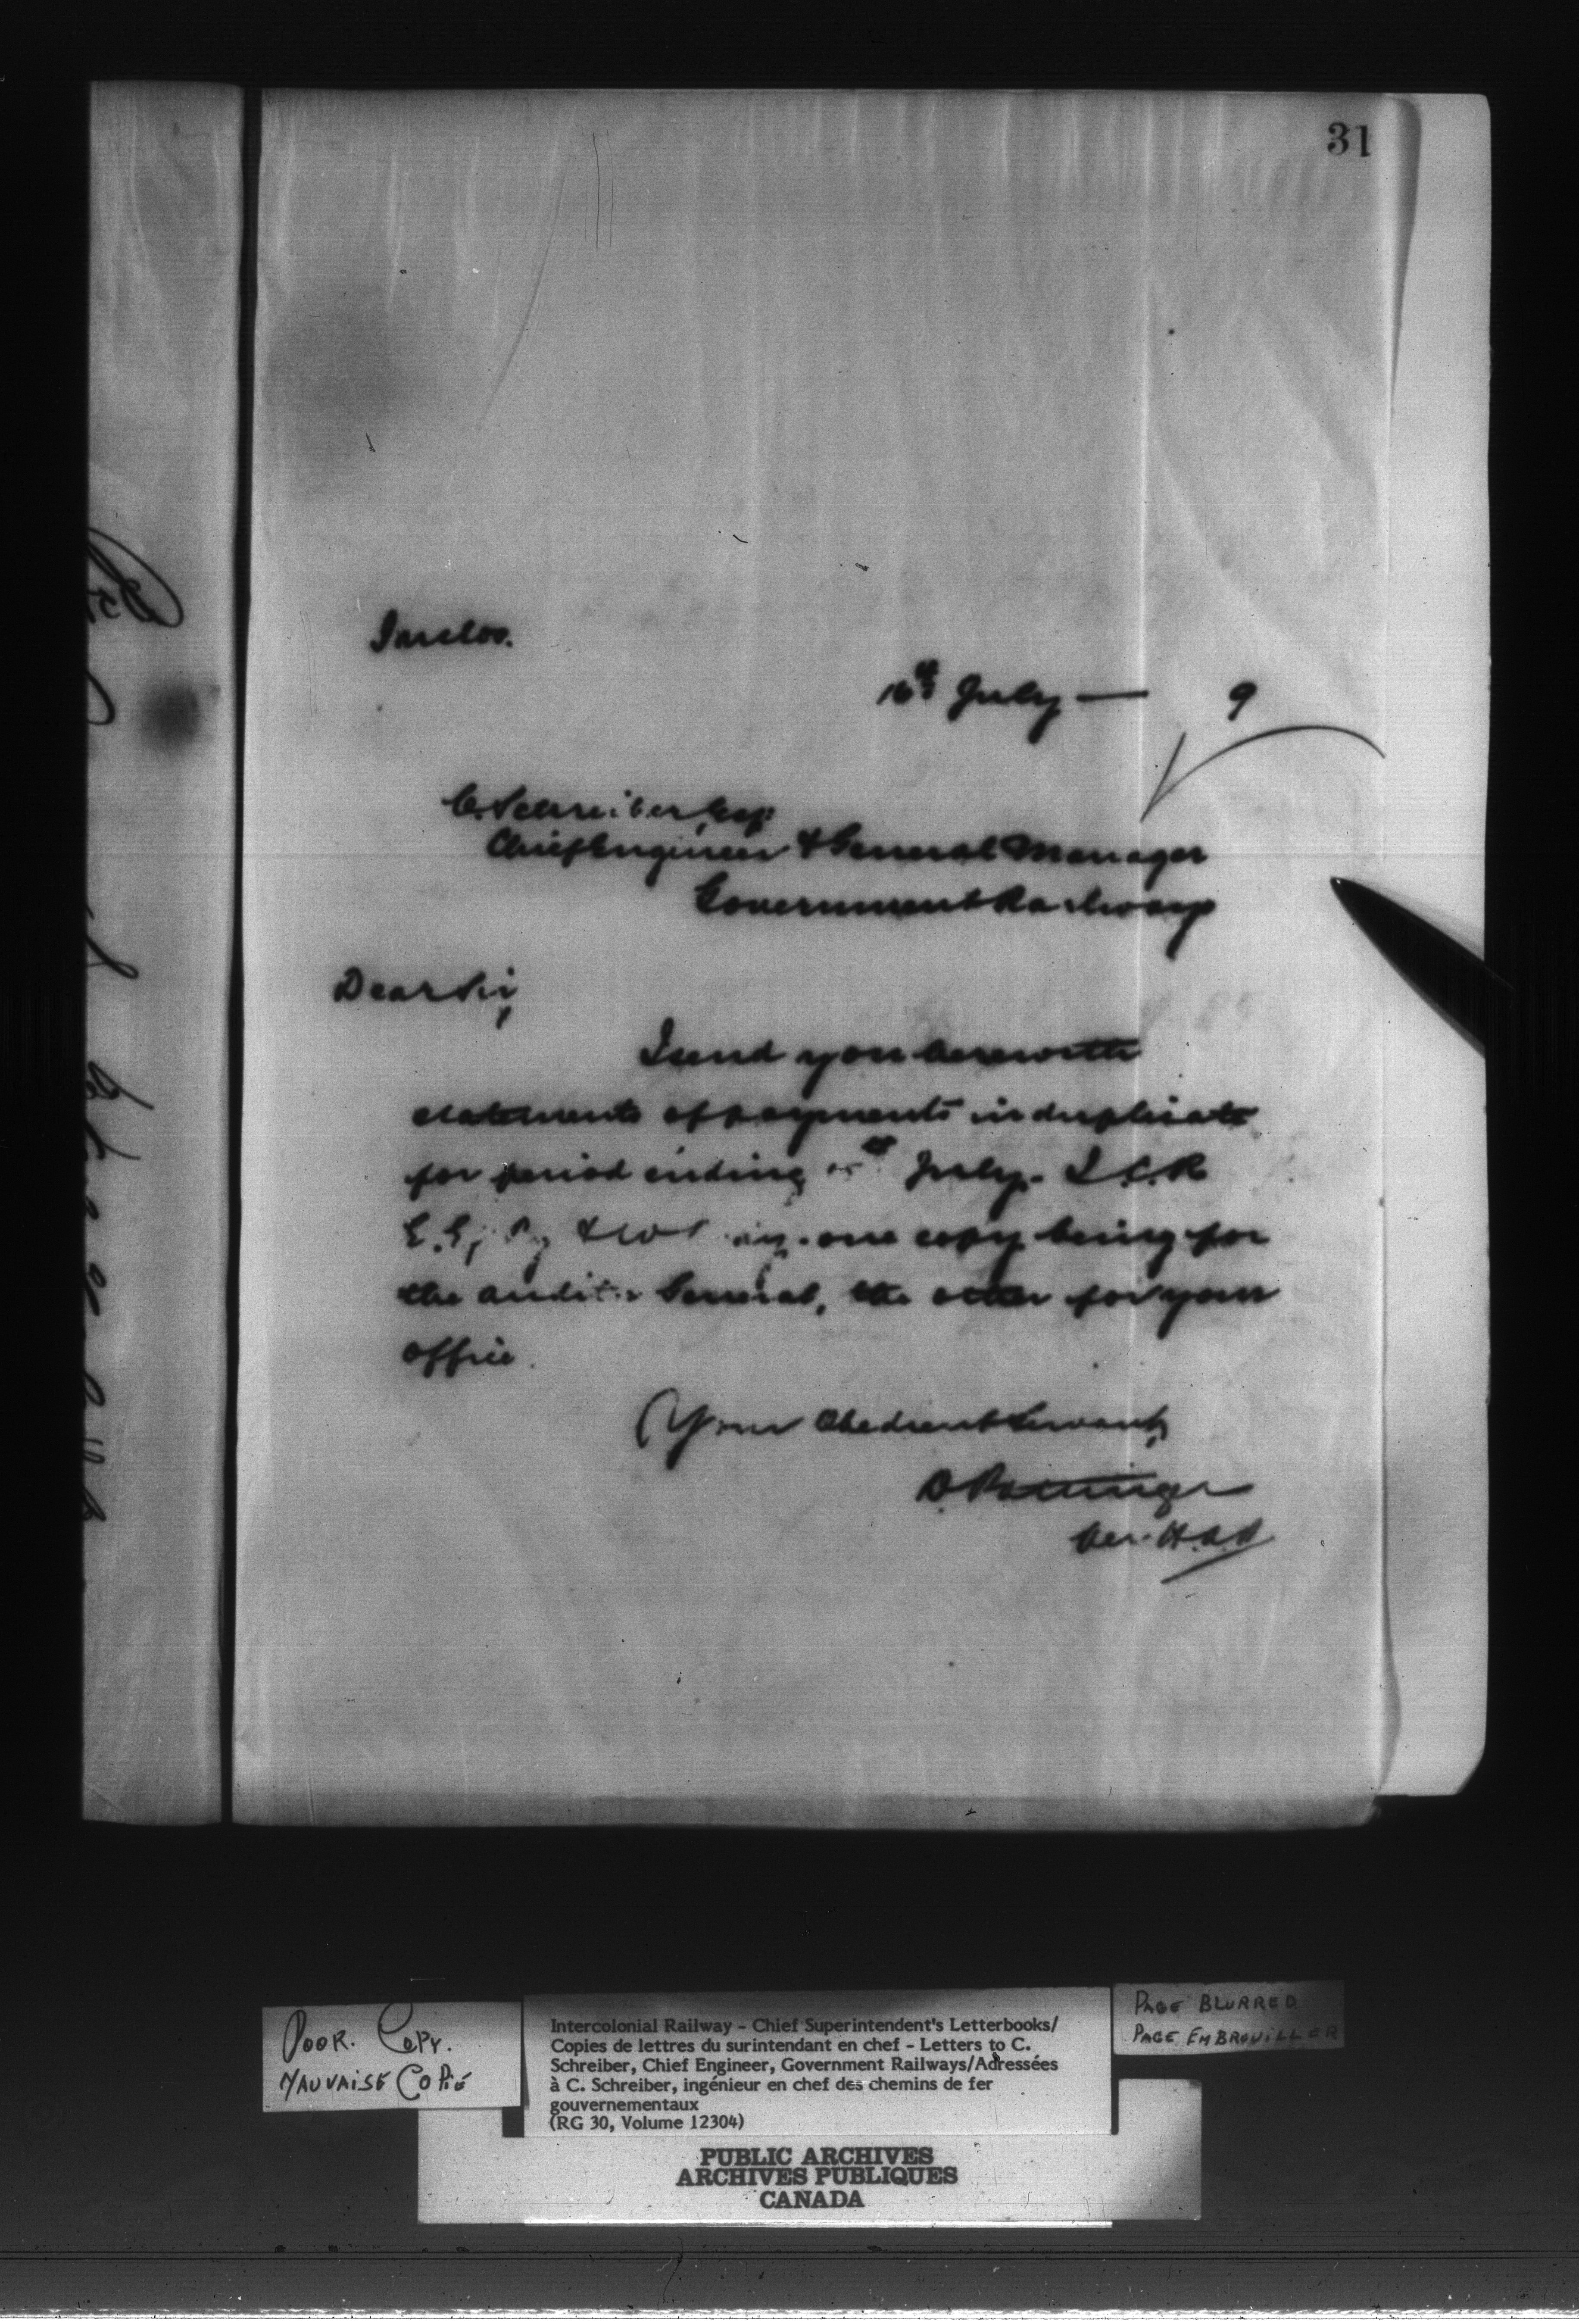 31
Inclos.
16th July — 9
C. Schreiber, Esq
Chief Engineer & General Manager
Government Railways
Dear Sir,
I send you herewith
statements of payments in duplicate
for period ending July. I.C.R
E.E, Ry & one copy being for
the Auditor General, the other for your
office.
Your Obedient Servant,
D Pottinger
Per H.A.
POOR. COPY.
MAUVAISE COPIÉ
Intercolonial Railway - Chief Superintendent's Letterbooks/
Copies de lettres du surintendant en chef - Letters to C.
Schreiber, Chief Engineer, Government Railways/Adressées
à C. Schreiber, ingénieur en chef des chemins de fer
gouvernementaux
(RG 30, Volume 12304)
PAGE BLURRED
PAGE EMBROUILLER
PUBLIC ARCHIVES
ARCHIVES PUBLIQUES
CANADA